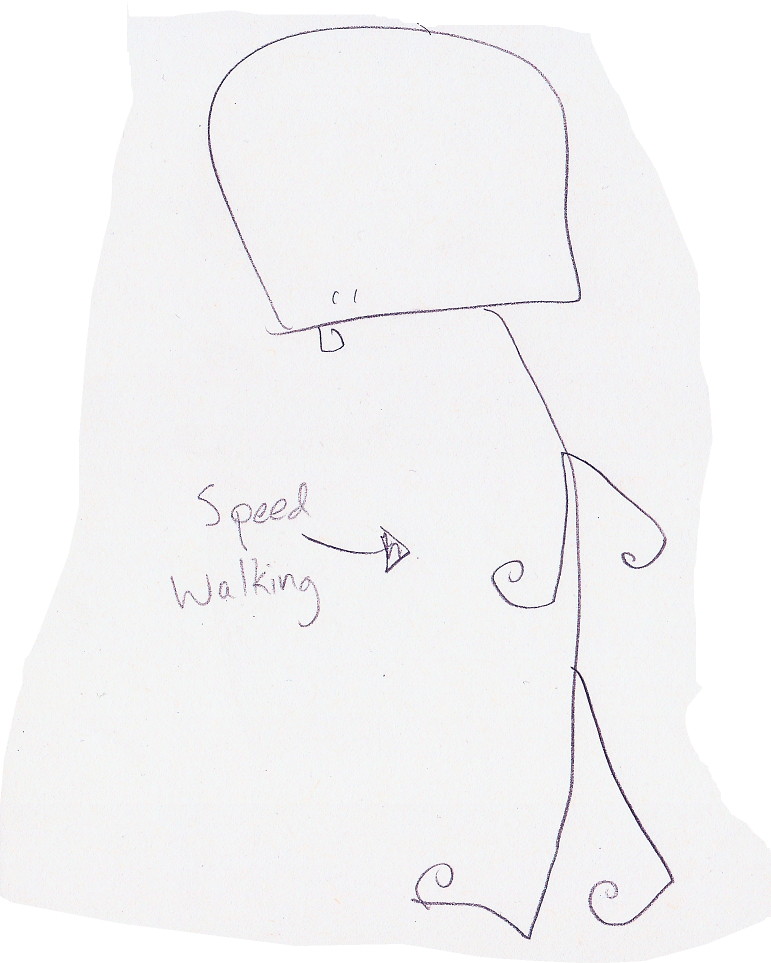 Speed
Walking